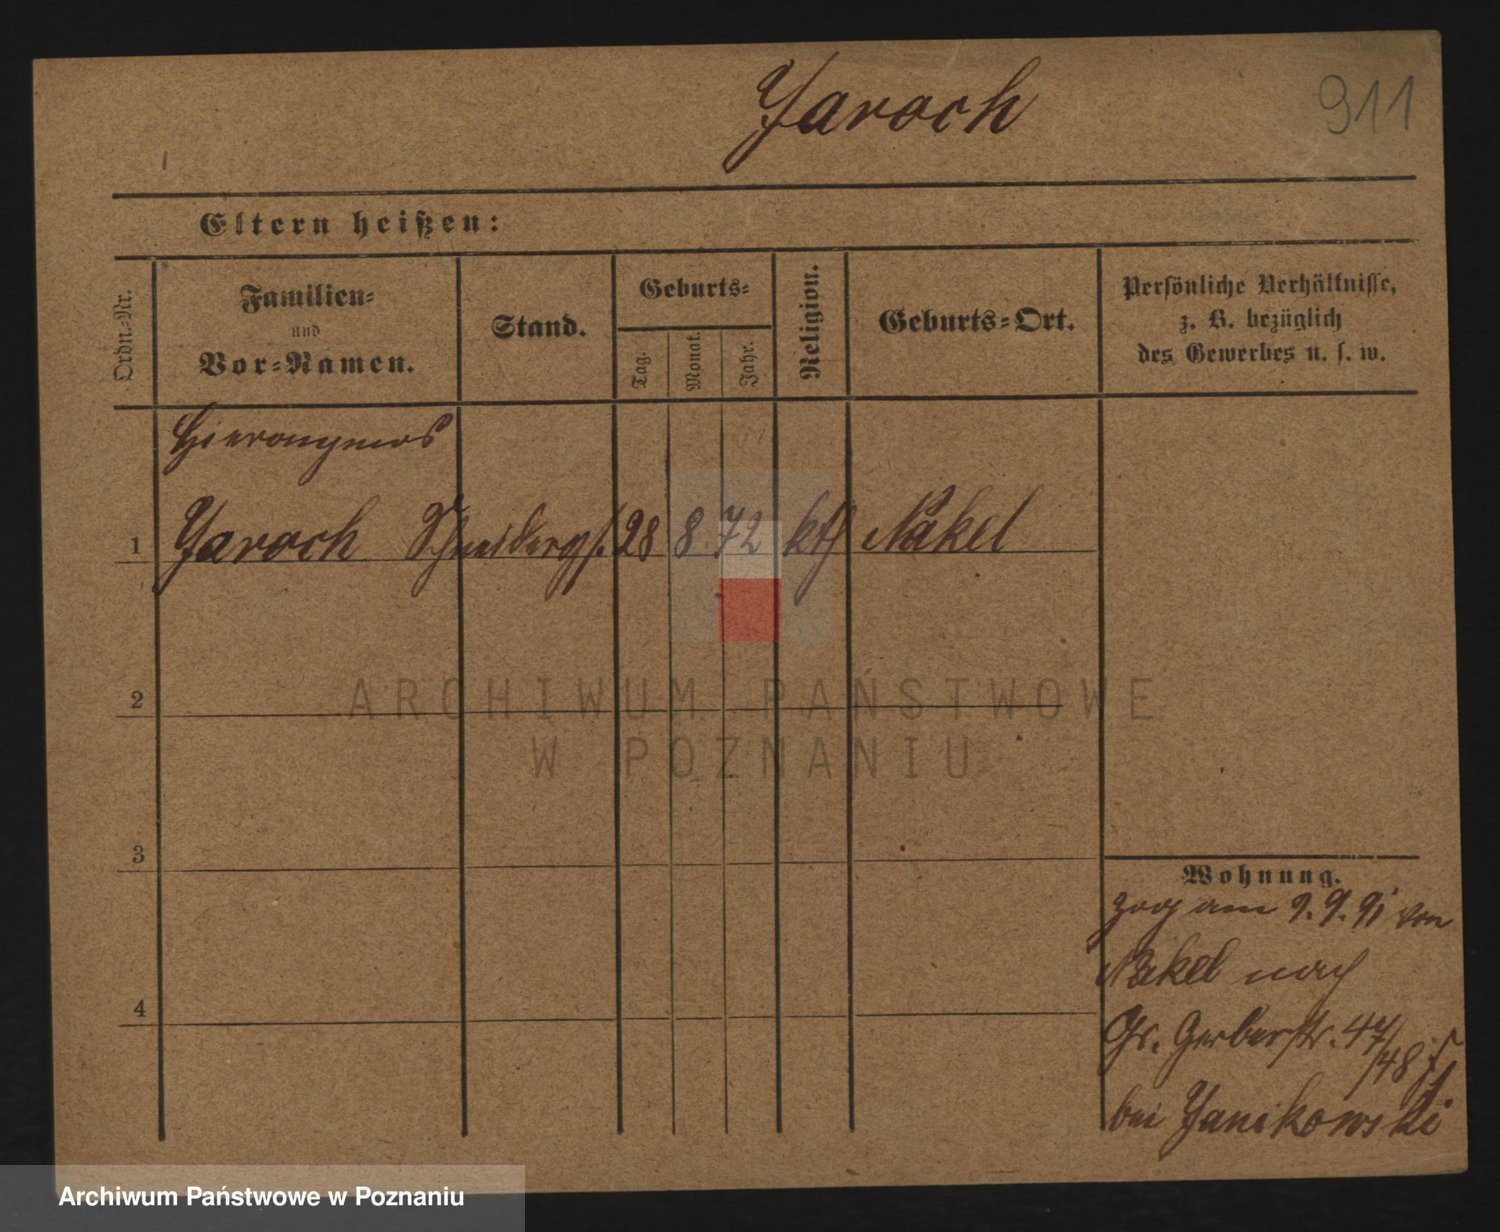 Jaroch
911
Eltern heißen:
Ordn.-Nr.
Familien-
und
Vor-Namen.
Stand.
Geburts-
Tag.
Monat.
Jahr.
Religion.
Geburts-Ort.
Persönliche Verhältnisse,
z. B. bezüglich
des Gewerbes u. s. w.
Hieronymus
1 Jaroch Schneiderges. 28 8 72 kth Nakel
2
3
4
Wohnung.
zog am 9.9.91 von
Nakel nach
Gr. Gerberstr. 47/48
bei Janikowski
ARCHIWUM PAŃSTWOWE
W POZNANIU
Archiwum Państwowe w Poznaniu